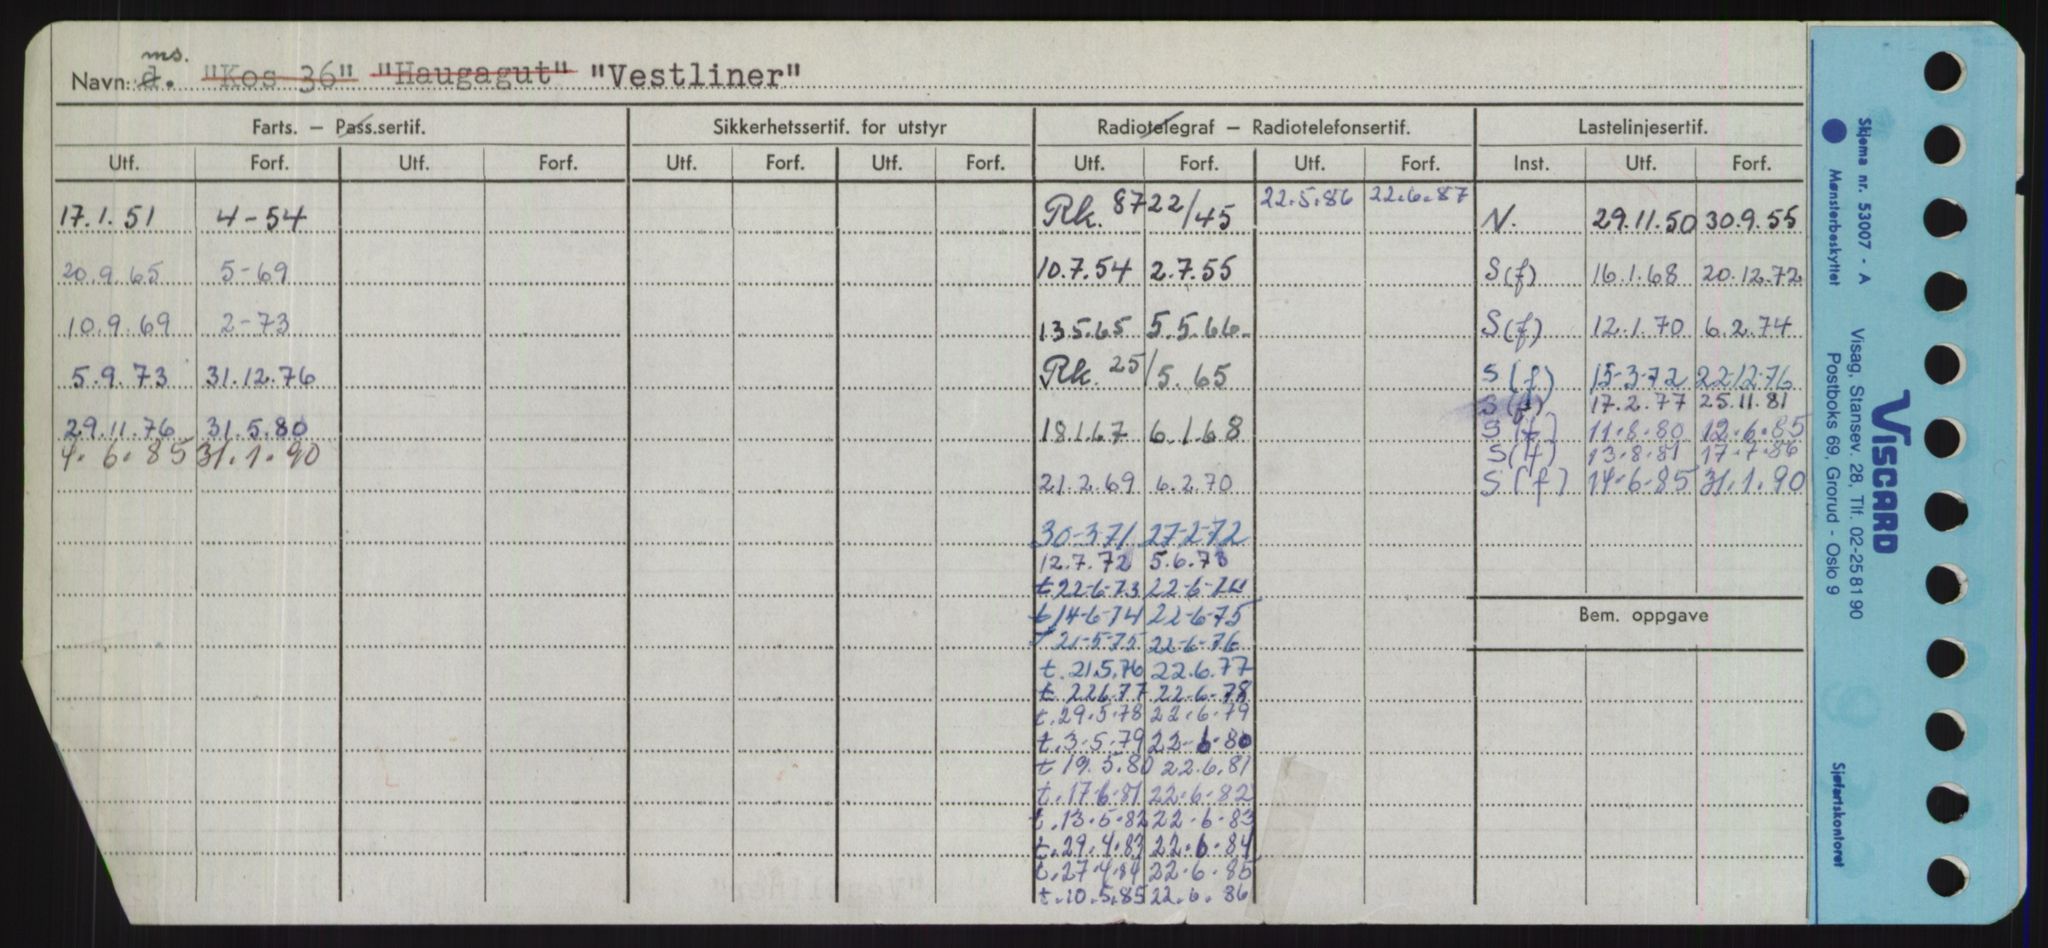 ms.
Navn: d. "Kos 36" "Haugagut" "Vestliner"
Farts. – Pass.sertif. Sikkerhetssertif. for utstyr Radiotelegraf – Radiotelefonsertif. Lastelinjesertif.
Utf. Forf. Utf. Forf. Utf. Forf. Utf. Forf. Utf. Forf. Utf. Forf. Inst. Utf. Forf.
17.1.51 4-54 Rk. 8722/45 22.5.86 22.6.87 N. 29.11.50 30.9.55
20.9.65 5-69 10.7.54 2.7.55 S(f) 16.1.68 20.12.72
10.9.69 2-73 13.5.65 5.5.66. S(f) 12.1.70 6.2.74
5.9.73 31.12.76 Rk. 25/5.65 S(f) 15-3-72 22.12.76
S(f) 17.2.77 25.11.81
29.11.76 31.5.80 18.1.67 6.1.68 S(f) 11.8.80 12.6.85
4.6.85 31.1.90 S(f) 13.8.81 17.7.86
21.2.69 6.2.70 S(f) 14.6.85 31.1.90
30-3-71 27-2-72
12.7.72 5.6.73
t 22-6-73 22-6-74
t 14-6-74 22-6-75
t 21-5-75 22-6-76
t. 21.5.76 22.6.77
t. 22.6.77 22.6.78
t. 29.5.78 22.6.79
t. 3.5.79 22.6.80
t 19.5.80 22.6.81
t. 17.6.81 22.6.82
t. 13.5.82 22.6.83
t. 29.4.83 22.6.84
t. 27.4.84 22.6.85
t. 10.5.85 22.6.86
Bem. oppgave
Skjema nr. 53007 - A
Mønsterbeskyttet
Sjøfartskontoret
Visag, Stansev. 28, Tlf. 02-25 81 90
Postboks 69, Grorud - Oslo 9
VISCARD